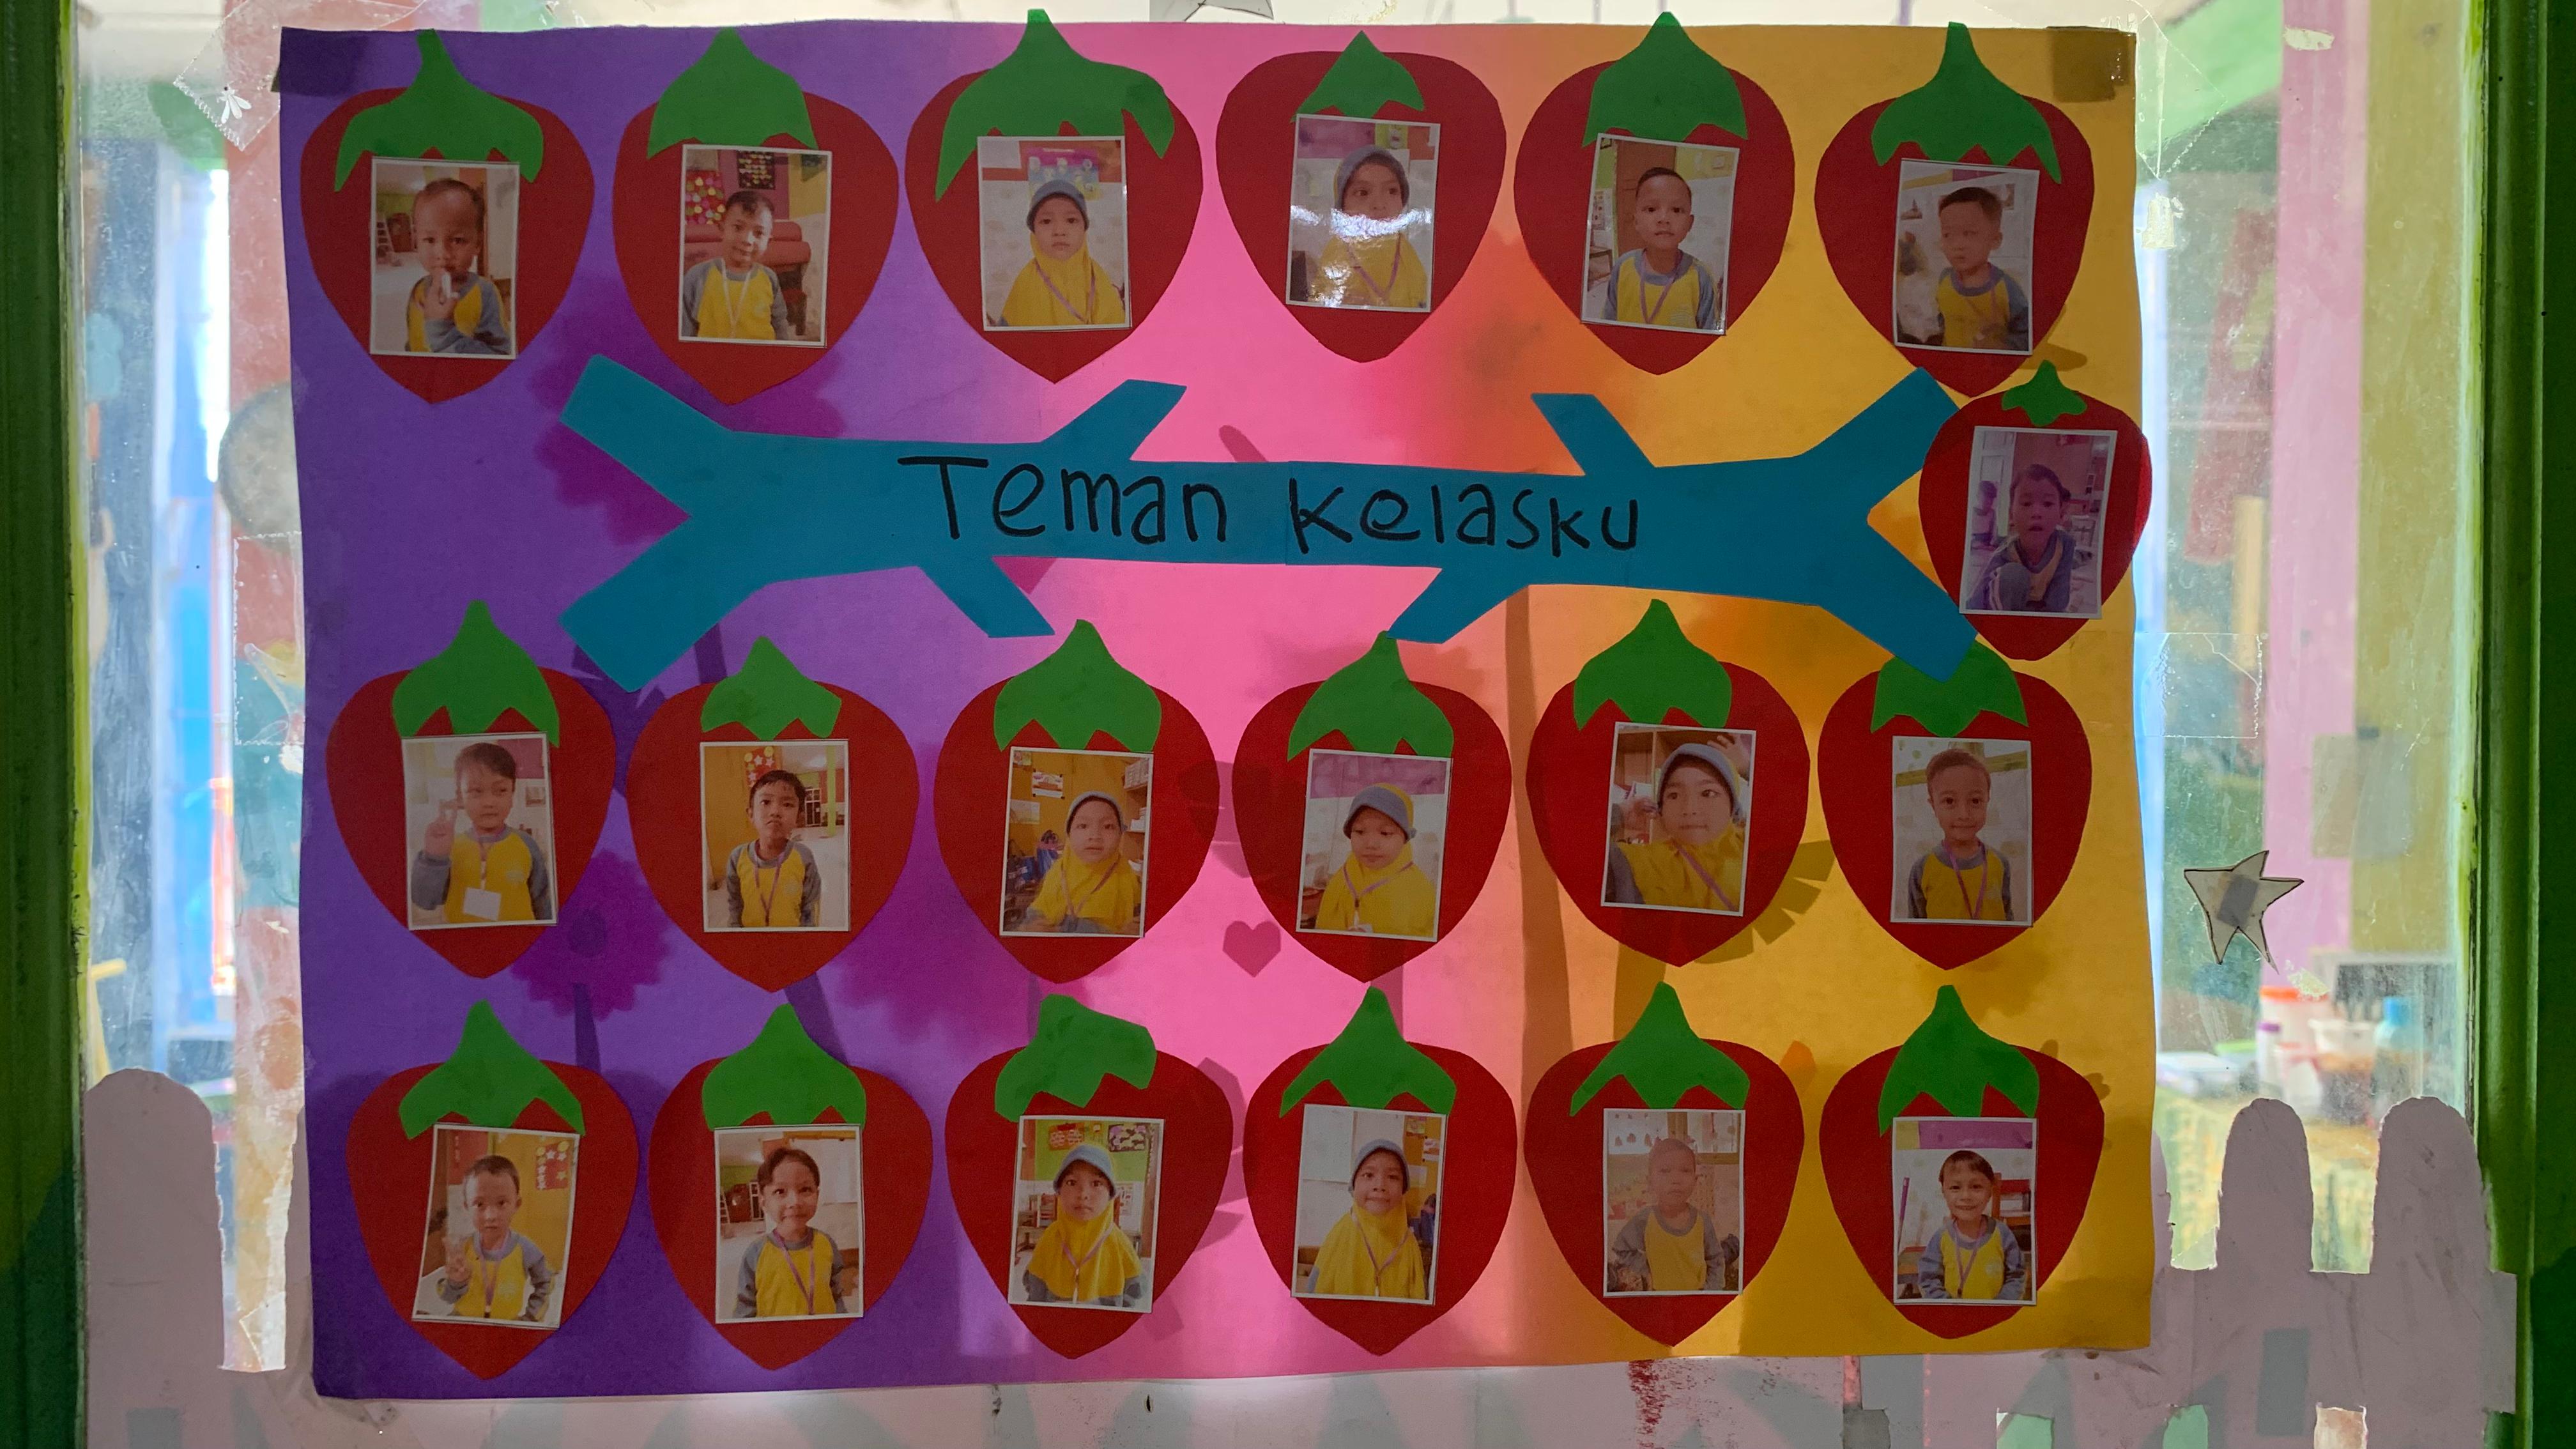 Teman Kelasku